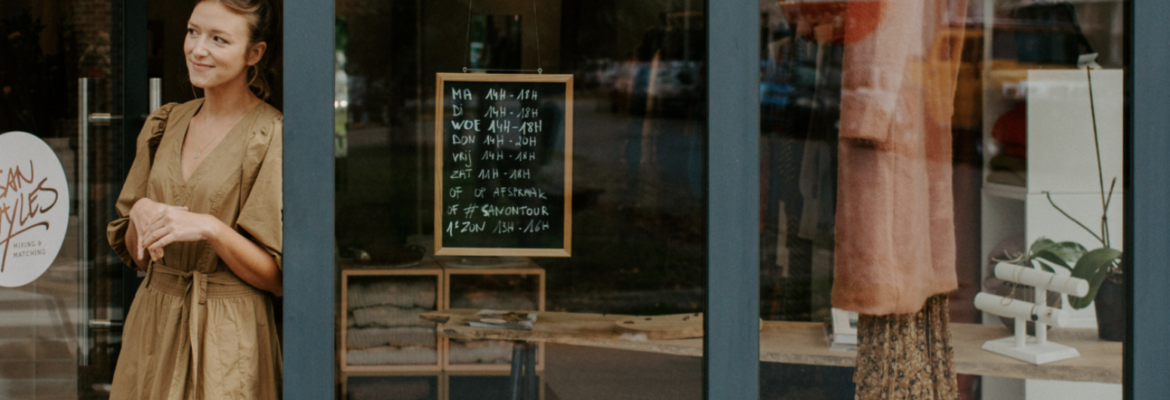 SAN
STYLES
MIXING &
MATCHING
MA 14H-18H
Di 14H-18H
WOE 14H-18H
DON 14H-20H
VRIJ 14H-18H
ZAT 11H-18H
OF OP AFSPRAAK
OF #SANONTOUR
1E ZON 13H-16H